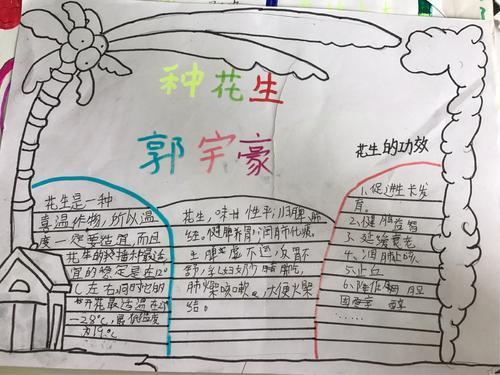 种花生
郭宇豪
花生的功效
花生是一种
喜温作物,所以温
度一定要适宜,而且
花生的
宜的
左右
开花最适温
-28℃,最低温度
为19℃
花生,味甘性平,归脾、肺
经。健脾养胃,润肺化痰。
主脾虚不运,反胃
妇奶
肺燥咳嗽。大便燥
结。
1、促进生长发
育
2、健脑益智
3、延缓衰老
4、润肺止咳
5、止血
6、降低
固醇
……